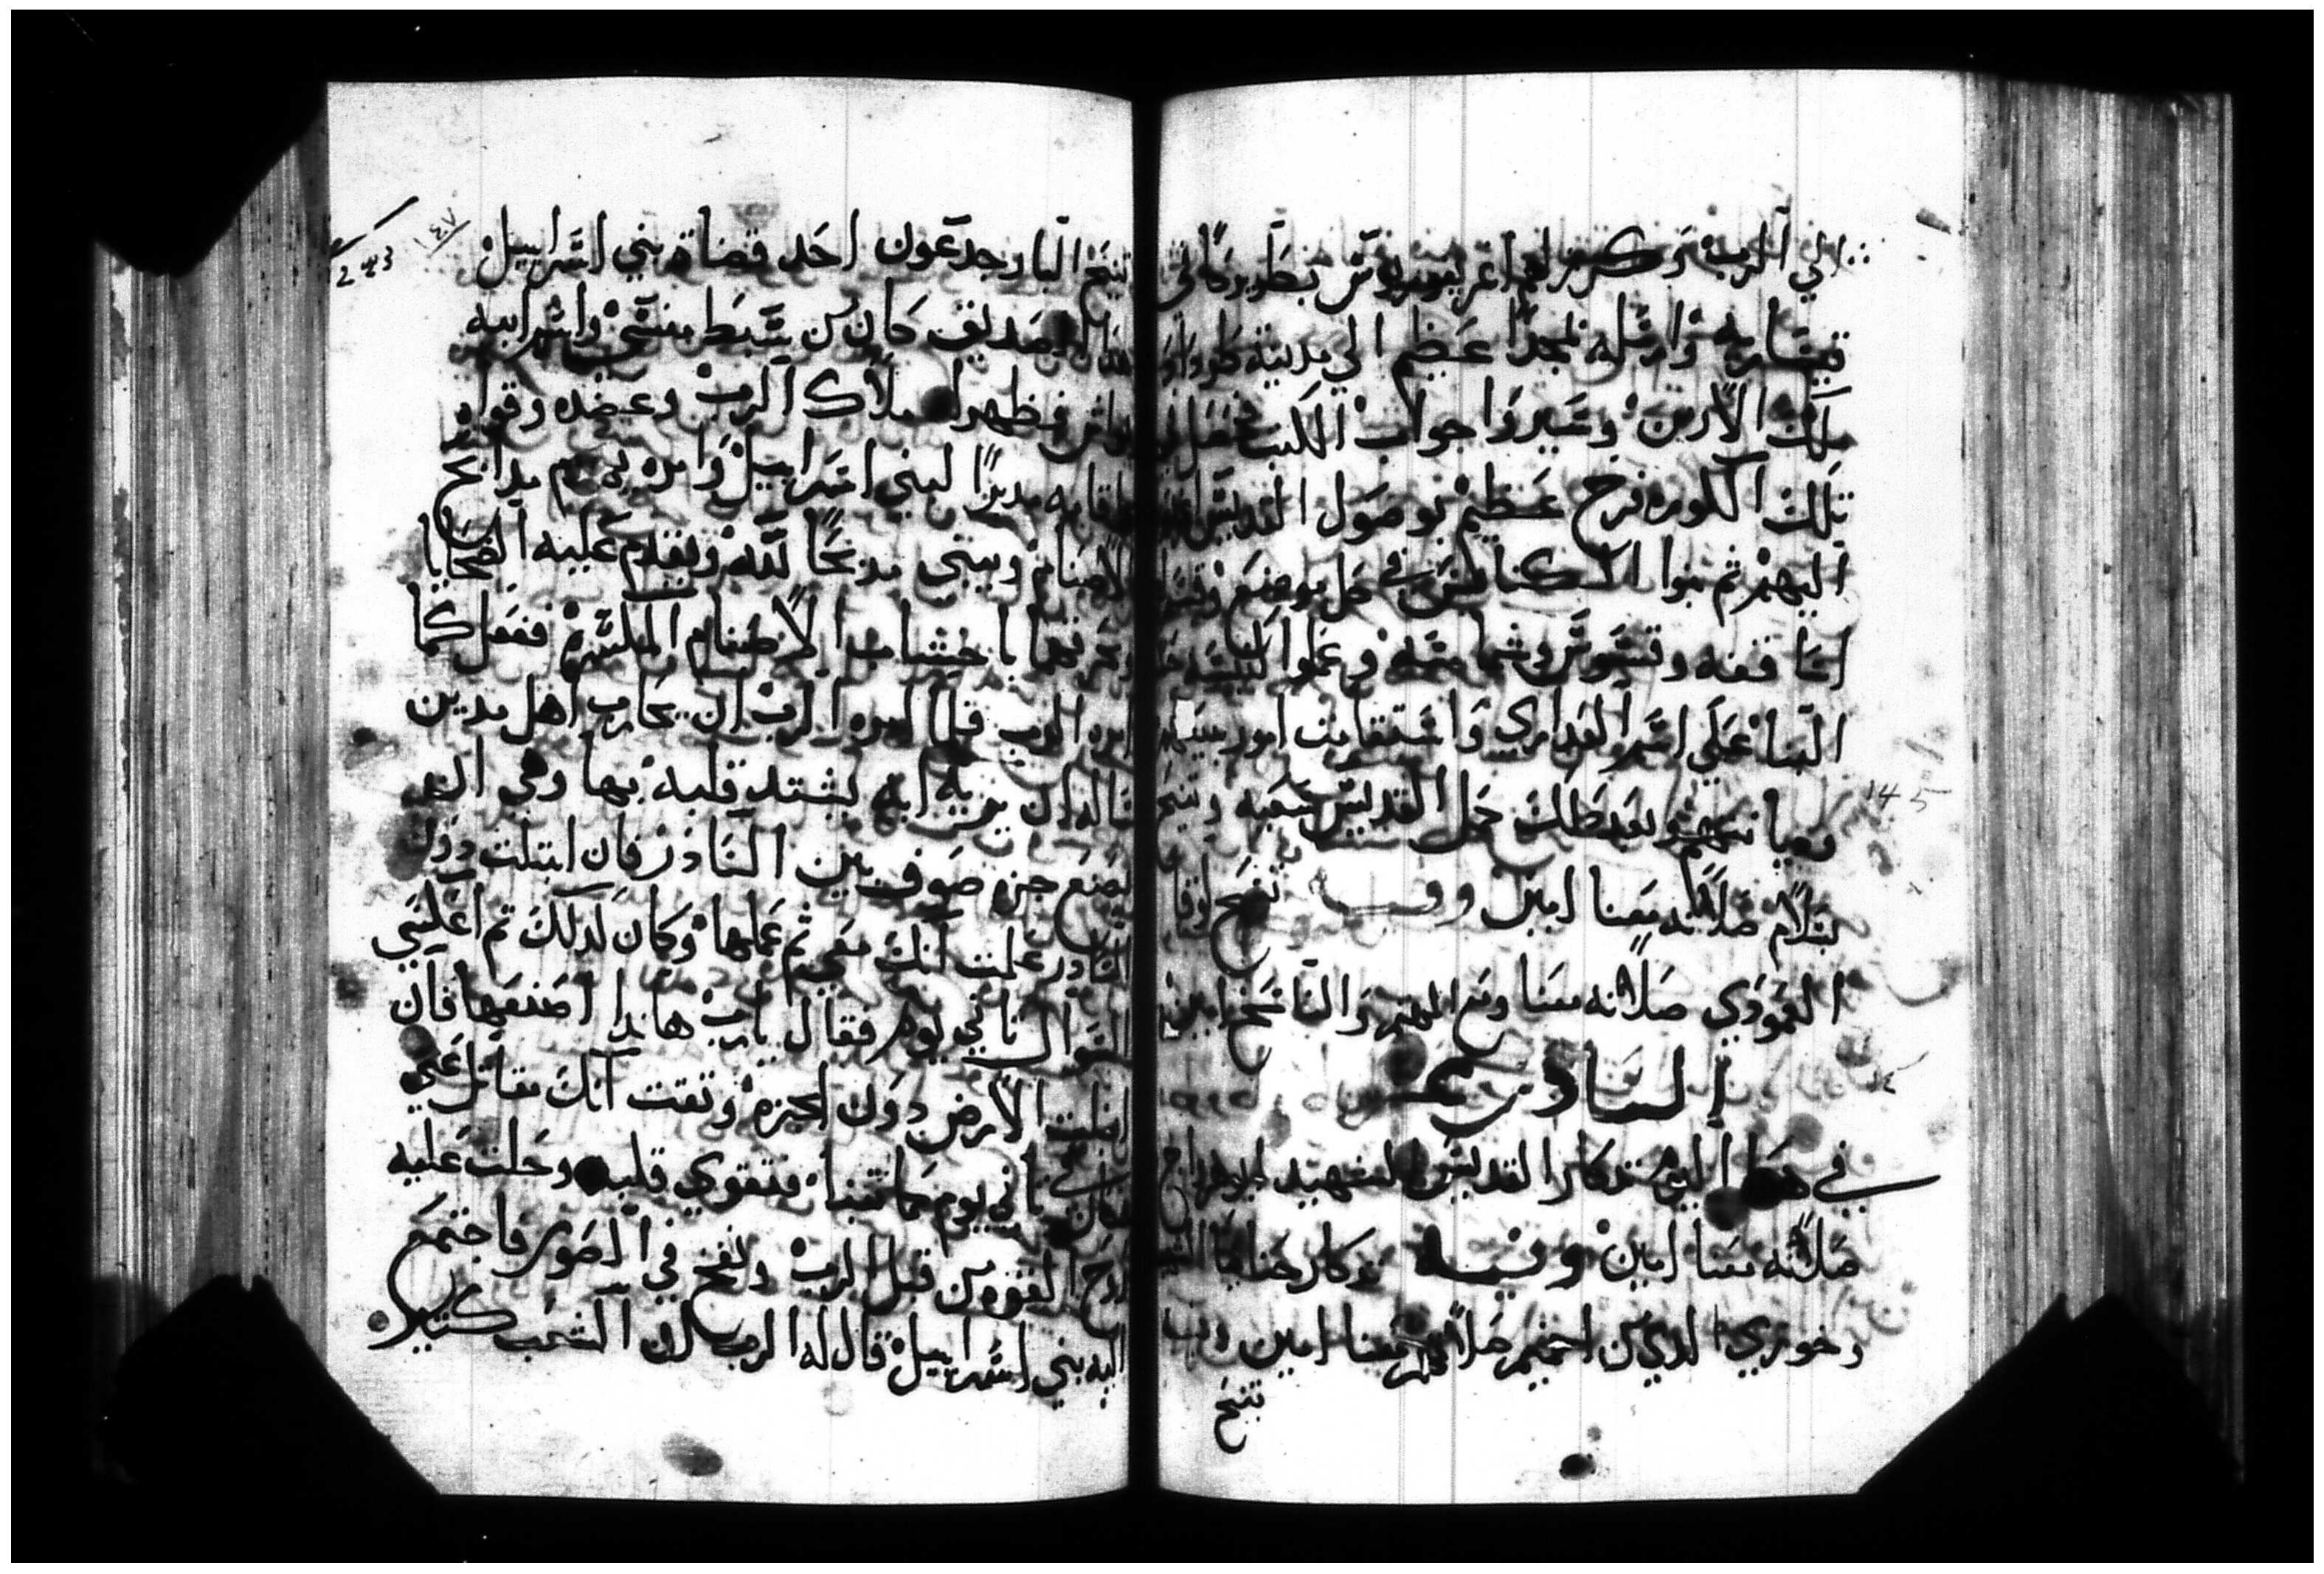 الي الرب ثم كرز لهم اغريغوريوس بطريركا في
قيسارية وارسله بمجدا عظيم الي مدينة
ملك الارمن وغيروا جواب الكتب
تلك الكوره فرح عظيم بوصول القديس
اليهم ثم بنوا الكنايس في كل موضع
اساقفه وقسوس وشمامسه وعملوا
النسا علي اسم العداري واستقامت امور
وبعد ذلك كمل القديس سعيه وتنيح
بسلام صلاته معنا امين وفيه تنيح لوقا
العمودي صلاته معنا ومع المهتم والناسخ امين
السادس عشر
في هدا اليوم تدكار القديس الشهيد
صلاته معنا امين وفيه تدكار حنانيا
وخوزي الدي من اخميم صلاتهم معنا امين وفيه
تنيح
147
243
تنيح البار جدعون احد قضاة بني اسراييل
هدا الصديق كان من سبط منسي واسم ابيه
يواش فظهر له ملاك الرب وعضده وقواه
واقامه مدبرا لبني اسراييل وامره يهدم مدابح
الاصنام ويبني مدبحا لله ويقدم عليه الضحايا
ويحرقها باخشاب الاصنام المكسره ففعل كما
امره الرب فلما امره الرب ان يحارب اهل مدين
ساله ان يريه ايه يشتد قلبه بها وهي انه
يضع جزة صوف بين النادر فان ابتلت دون
النادر علمت انك معي ثم عملها وكان كدلك ثم
السوال تاني يوم فقال يارب هاندا اصنعها فان
ابتلت الارض دون الجزه وثقت انك مقاتل عني
فكان في تاني يوم كما تمنا فتقوي قلبه وحلت عليه
روح القوه من قبل الرب ونفخ في الصور فاجتمع
اليه بني اسراييل قال له الرب ان الشعب كتير